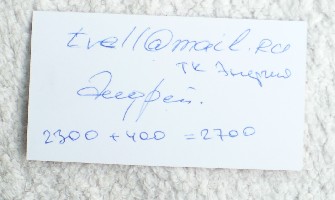 tvell@mail.ru
ТК Энергия
Андрей.
2300 + 400 = 2700